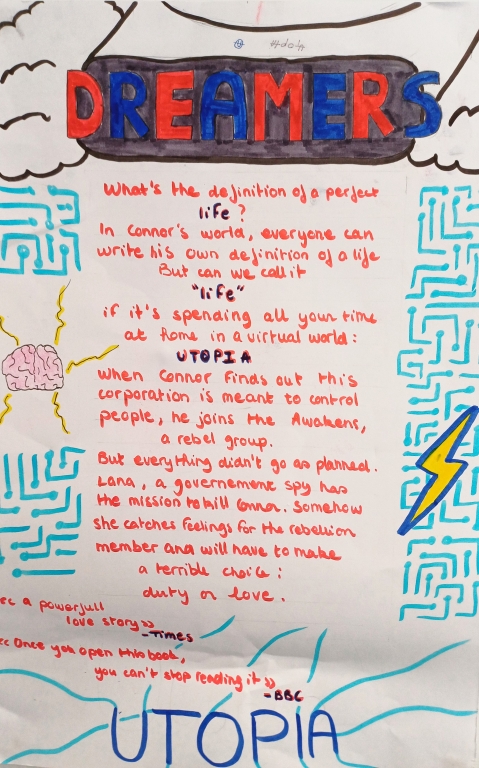 DREAMERS
What's the definition of a perfect
life?
In Connor's world, everyone can
write his own definition of a life
But can we call it
"life"
if it's spending all your time
at home in a virtual world:
UTOPIA
When Connor finds out this
corporation is meant to control
people, he joins the Awakens,
a rebel group.
But everything didn't go as planned.
Lana, a governement spy has
the mission to kill Connor. Somehow
she catches feelings for the rebellion
member and will have to make
a terrible choice:
duty or love.
<< a powerfull
love story >>
-Times
<< Once you open this book,
you can't stop reading it >>
-BBC
UTOPIA